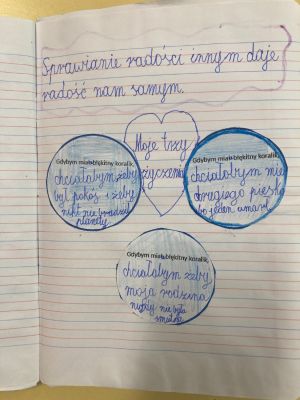 Sprawianie radości innym daje
radość nam samym.
Moje trzy
życzenia
Gdybym miał błękitny koralik,
chciałabym żeby
był pokój i żeby
nikt nie brudził
planety
Gdybym miał błękitny koralik,
chciałabym mieć
drugiego pieska
bo jeden umarł
Gdybym miał błękitny koralik,
chciałabym żeby
moja rodzina
nigdy nie była
smutna